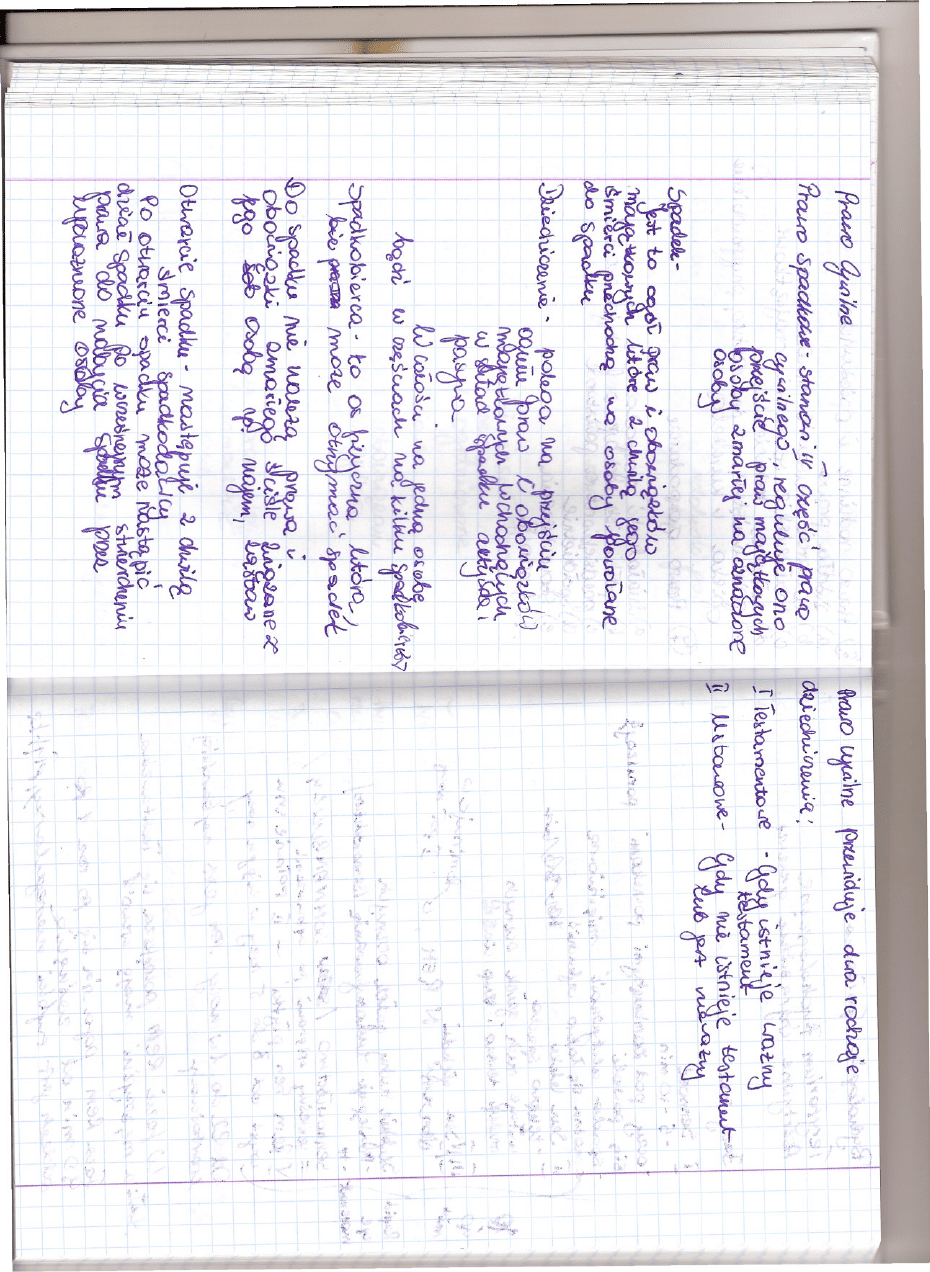 Prawo Cywilne
Prawo spadkowe - stanowi IV część prawa
cywilnego, reguluje ono
przejście praw majątkowych
osoby zmarłej na oznaczone
osoby
Spadek -
jest to ogół praw i obowiązków
majątkowych które z chwilą jego
śmierci przechodzą na osoby powołane
do spadku
Dziedziczenie - polega na przejściu
ogółu praw i obowiązków
majątkowych wchodzących
w skład spadku aktywa i
pasywa
W całości na jedną osobę
bądź w częściach na kilku spadkobierców
Spadkobierca - to os fizyczna która,
może otrzymać spadek
Do spadku nie należą prawa i
obowiązki zmarłego ściśle związane z
jego osobą np. najem,
Otwarcie spadku - następuje z chwilą
śmierci spadkodawcy
Po otwarciu spadku może nastąpić
dział spadku po wcześniejszym stwierdzeniu
prawa do nabycia spadku przez
uprawnione osoby
Prawo cywilne przewiduje dwa rodzaje
dziedziczenia:
I Testamentowe - Gdy istnieje ważny
testament
II Ustawowe - Gdy nie istnieje testament
lub jest nieważny